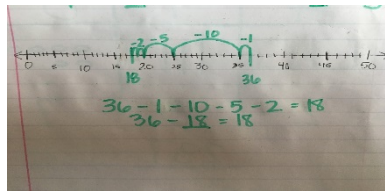 -2 -5 -10 -1
0 5 10 15 20 25 30 35 40 45 50
18 36
36 - 1 - 10 - 5 - 2 = 18
36 - 18 = 18